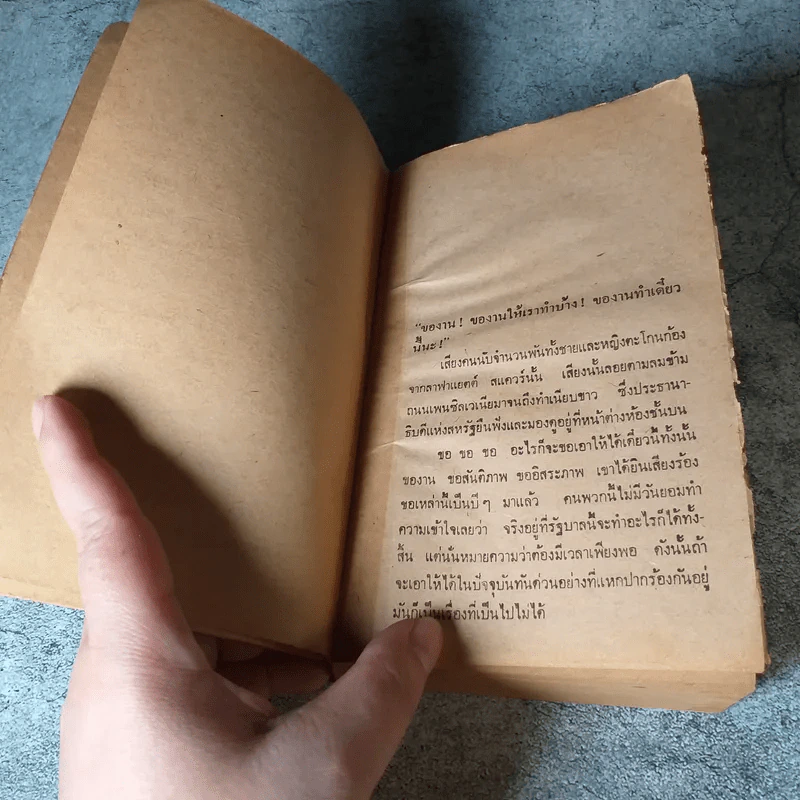 “ของาน ! ของานให้เราทำบ้าง ! ของานทำเดี๋ยว
นี้นะ !”
เสียงคนนับจำนวนพันทั้งชายและหญิงตะโกนก้อง
จากลาฟาแยตต์ สแควร์นั้น เสียงนั้นลอยตามลมข้าม
ถนนเพนซิลเวเนียมาจนถึงทำเนียบขาว ซึ่งประธานา-
ธิบดีแห่งสหรัฐยืนฟังและมองดูอยู่ที่หน้าต่างห้องชั้นบน
ขอ ขอ ขอ อะไรก็จะขอเอาให้ได้เดี๋ยวนี้ทั้งนั้น
ของาน ขอสันติภาพ ขออิสระภาพ เขาได้ยินเสียงร้อง
ขอเหล่านี้เป็นปี ๆ มาแล้ว คนพวกนี้ไม่มีวันยอมทำ
ความเข้าใจเลยว่า จริงอยู่ที่รัฐบาลนี้จะทำอะไรก็ได้ทั้ง-
สิ้น แต่นั่นหมายความว่าต้องมีเวลาเพียงพอ ดังนั้นถ้า
จะเอาให้ได้ในปัจจุบันทันด่วนอย่างที่แหกปากร้องกันอยู่
มันก็เป็นเรื่องที่เป็นไปไม่ได้